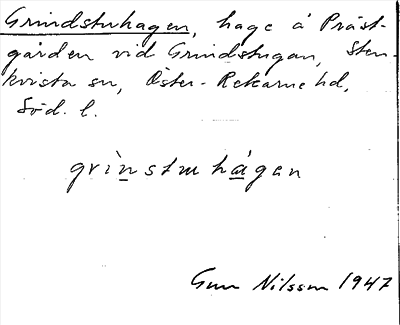 Grindstuhagen, hage å Präst-
gården vid Grindstugan, Sten-
kvista sn, Öster-Rekarne hd,
Söd. l.
grìnstuhágan
Gun Nilsson 1947